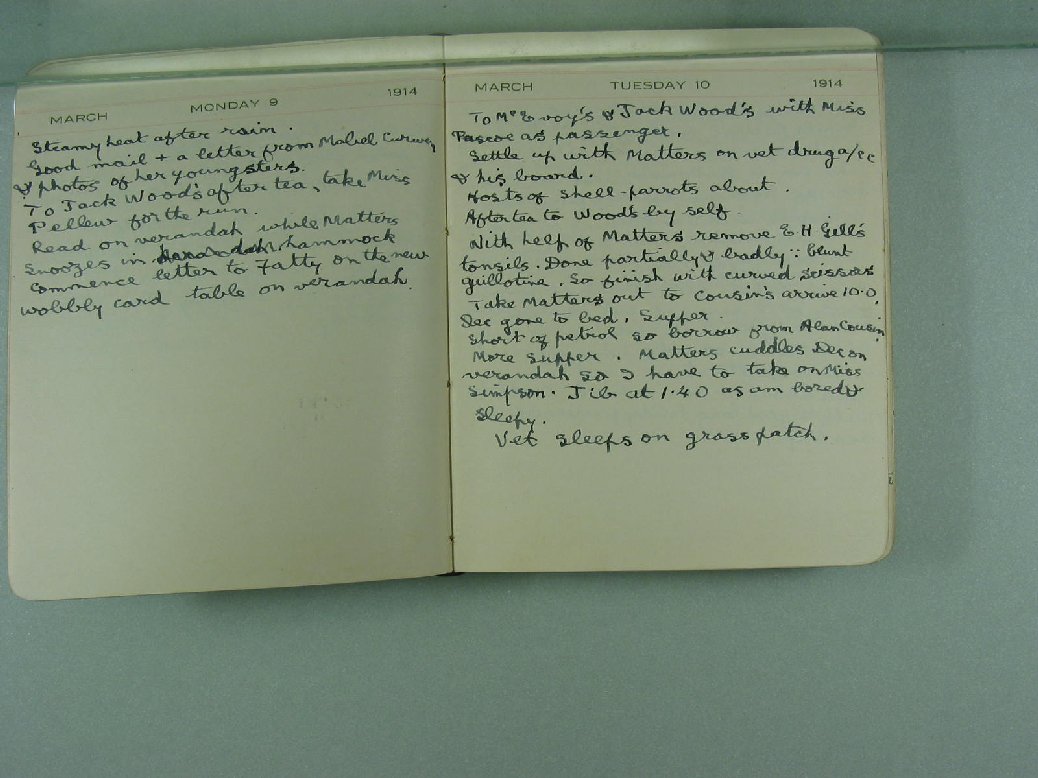 MARCH MONDAY 9 1914
Steamy heat after rain.
Good mail + a letter from Mabel Curwen
& photos of her youngsters.
To Jack Wood's after tea, take Miss
Pellew for the run.
Read on verandah while Matters
snoozes in hammock
Commence letter to Fatty on the new
wobbly card table on verandah.
MARCH TUESDAY 10 1914
To McEvoy's & Jack Wood's with Miss
Pascoe as passenger.
Settle up with Matters on vet drug a/cc
& his board.
Hosts of shell-parrots about.
After tea to Wood's by self.
With help of Matters remove E. H Gell's
tonsils. Done partially & badly ∵ blunt
guillotine. So finish with curved scissors
Take Matters out to Cousin's arrive 10.0.
Dec gone to bed. Supper.
Short of petrol so borrow from Alan Cousin.
More supper. Matters cuddles Dec on
verandah so I have to take on Miss
Simpson. Jib at 1.40 as am bored &
sleepy.
Vet sleeps on grass patch.